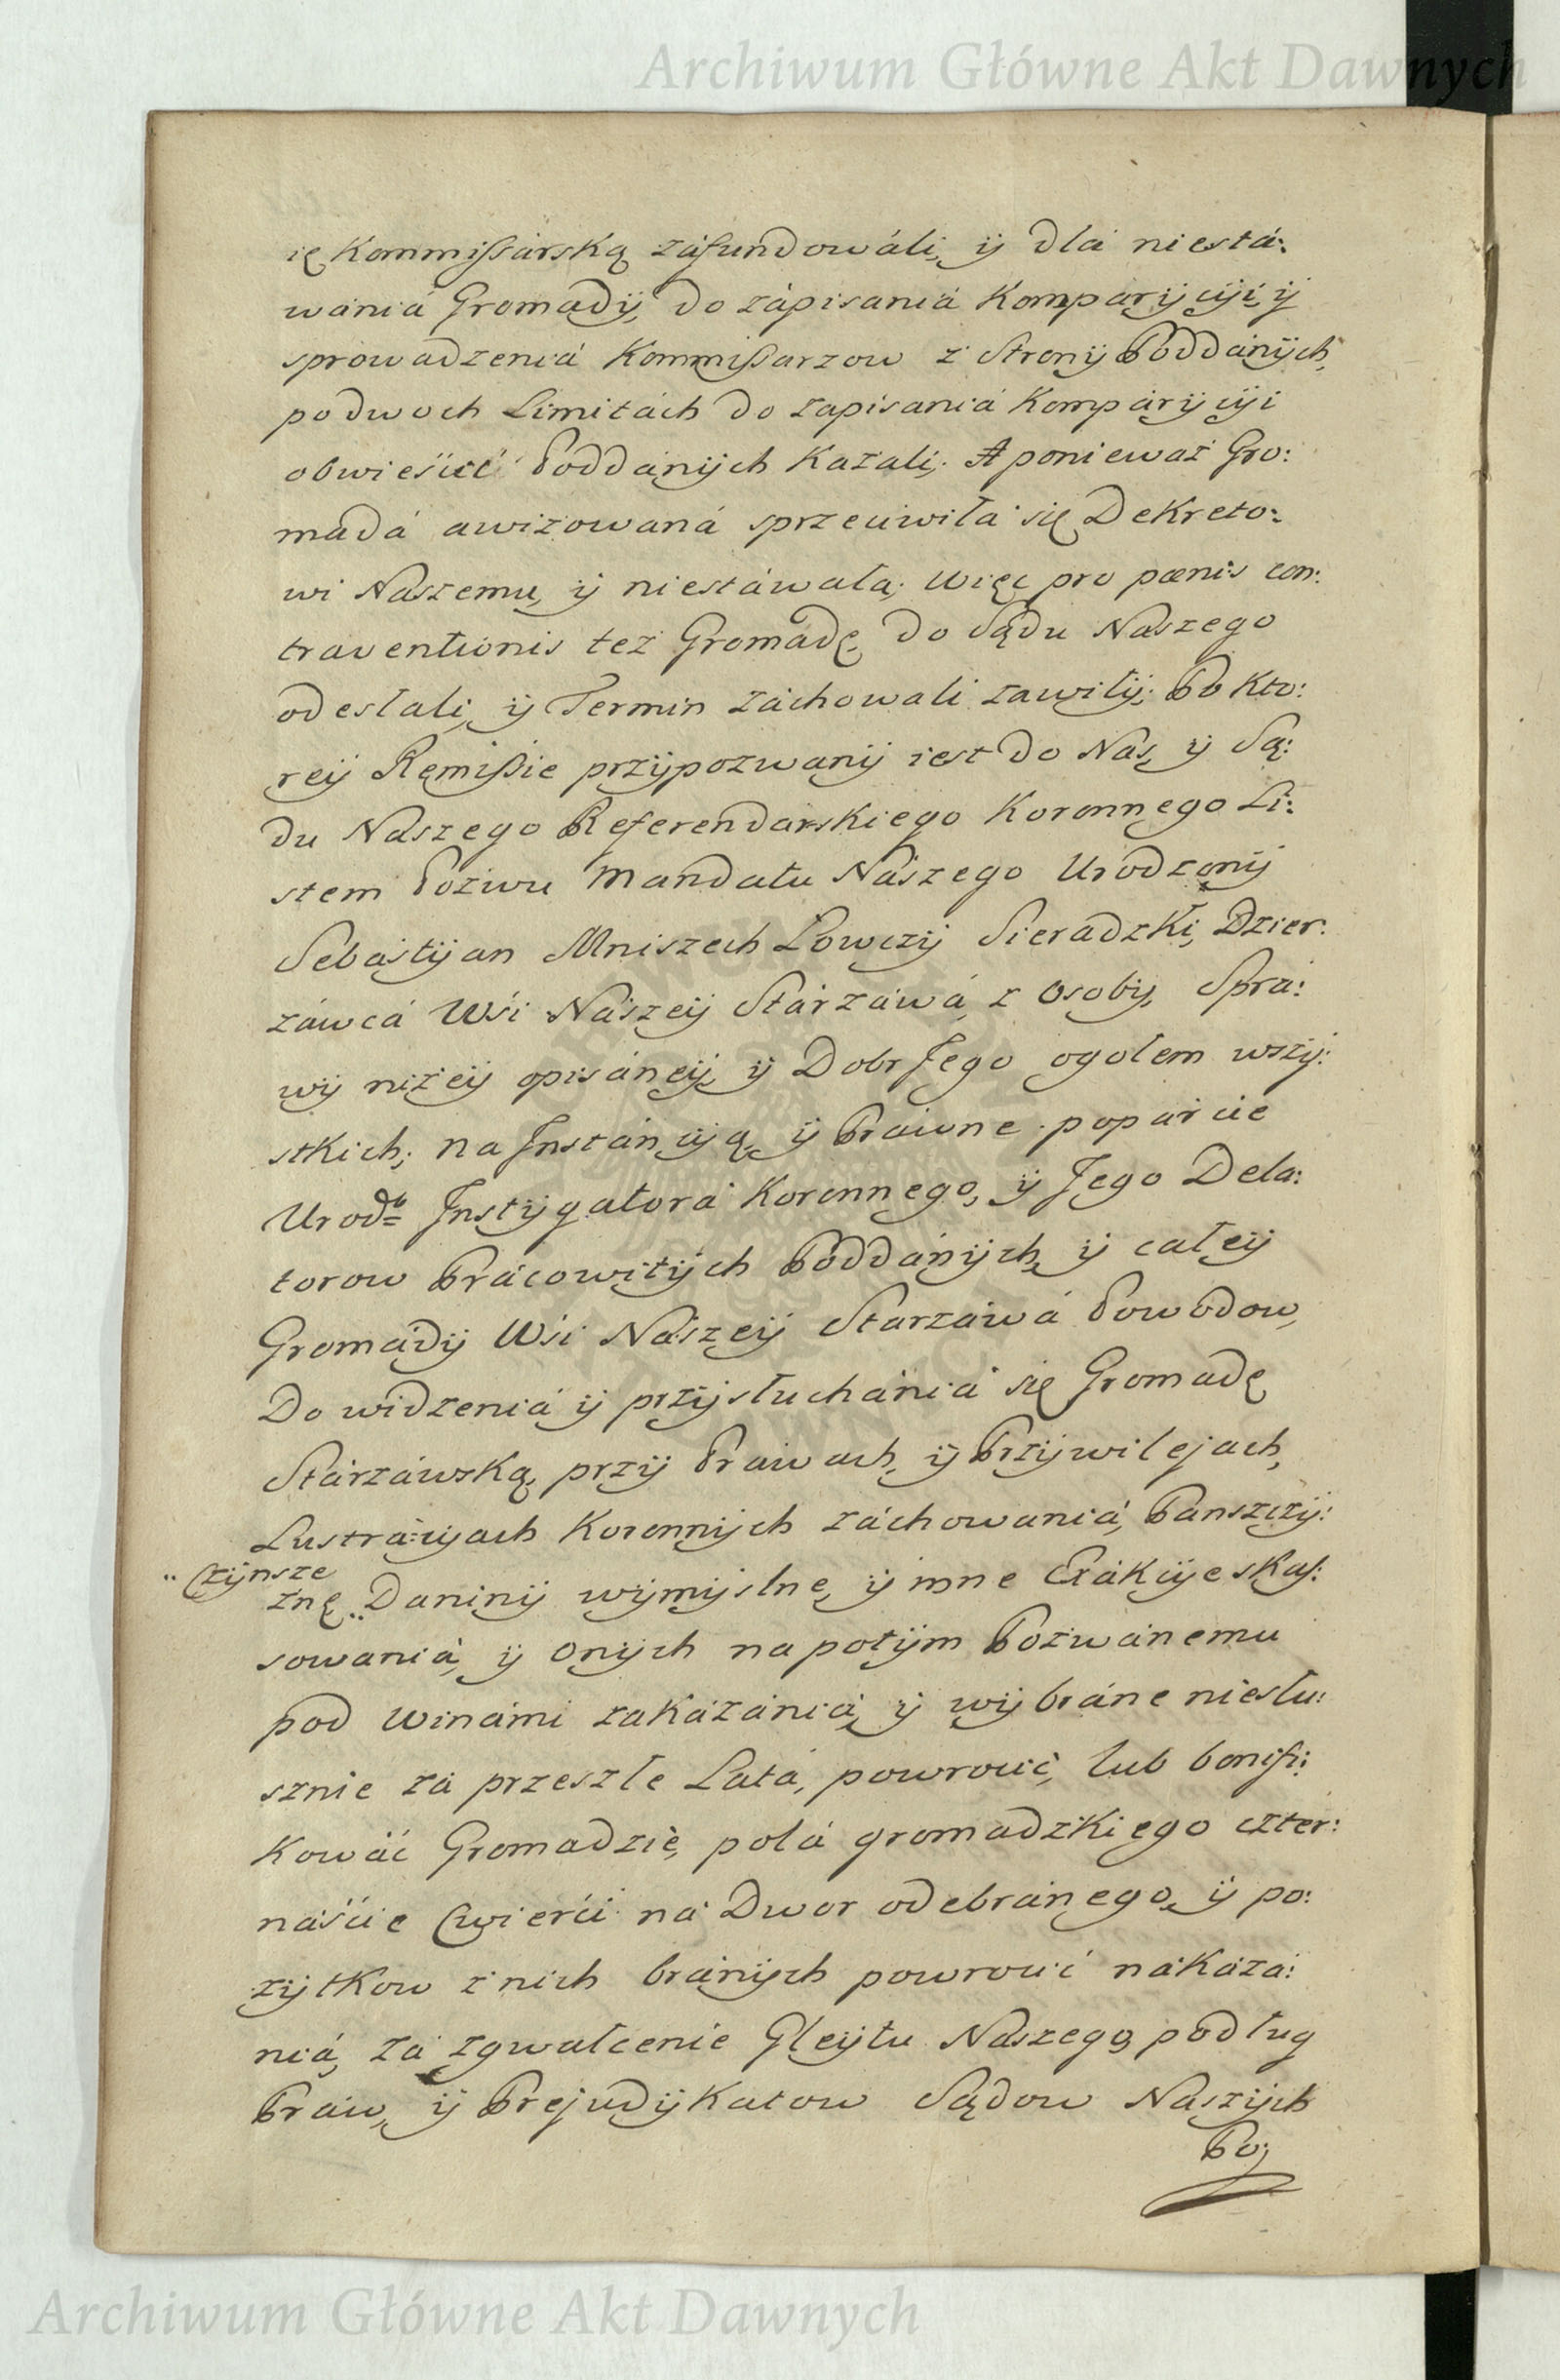 Archiwum Główne Akt Dawnych
ię Kommissárską záfundowáli, ÿ dlá niestá:
wániá Gromadÿ, do zápisaniá Komparÿcÿi, ÿ
sprowadzeniá Kommissarzow z Stronÿ Poddánÿch,
po dwoch Limitách do zapisaniá Kompárÿcÿi
obwieścić Poddánÿch Kazali; A ponieważ Gro:
madá awizowaná sprzeciwiłá się Dekreto:
wi Naszemu, ÿ niestáwałá; Więc pro pœnis con:
traventionis też Gromadę, do Sądu Naszego
odesłali, ÿ Termin záchowali zawitÿ; Po Kto:
reÿ Remissie przÿpozwanÿ iest do Nas, ÿ Są:
du Naszego Referendarskiego Koronnego Li:
stem Pozwu Mandatu Nászego Urodzonÿ
Sebastÿan Mniszech Łowczÿ Sieradzki, Dzier:
záwcá Wśi Nászeÿ Stárzáwá, z Osobÿ, Sprá:
wÿ niżeÿ opisáneÿ, ÿ Dobr Jego ogołem wszÿ:
stkich; na Instáncÿą, ÿ Práwne poparcie
Urodo Instÿgatorá Koronnego, ÿ Jego Dela:
torow Prácowitÿch Poddánÿch, ÿ całeÿ
Gromádÿ Wśi Nászeÿ Starzáwá Powodow,
Do widzeniá ÿ przÿsłuchániá się Gromadę
Stárzáwską, przÿ Práwach, ÿ Przÿwilejach,
Lustrácÿach Koronnÿch záchowaniá, Panszczÿ:
„ Czÿnsze
znę „ Daninÿ wÿmÿslne, ÿ inne Exákcÿe skas:
sowaniá, ÿ Onÿch na potÿm Pozwánemu
pod Winámi zakázániá, ÿ wÿbráne niesłu:
sznie zá przeszłe Latá, powrocić, lub bonifi:
kowáć Gromadzie, polá gromadzkiego czter:
náście Cwierći ná Dwor odebránego, ÿ po:
zÿtkow z nich bránÿch powrocić nákázá:
niá, zá zgwałcenie Gleÿtu Naszego, podług
Práw, ÿ Prejudÿkatow Sądow Naszÿch
Po:
Archiwum Główne Akt Dawnych